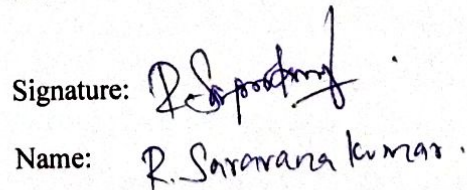 Signature:
Name: R. Saravana kumar.